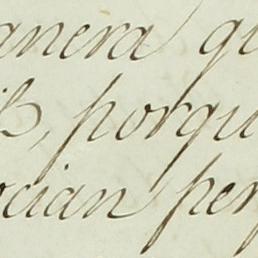 anera qu
, porqu
ocian per